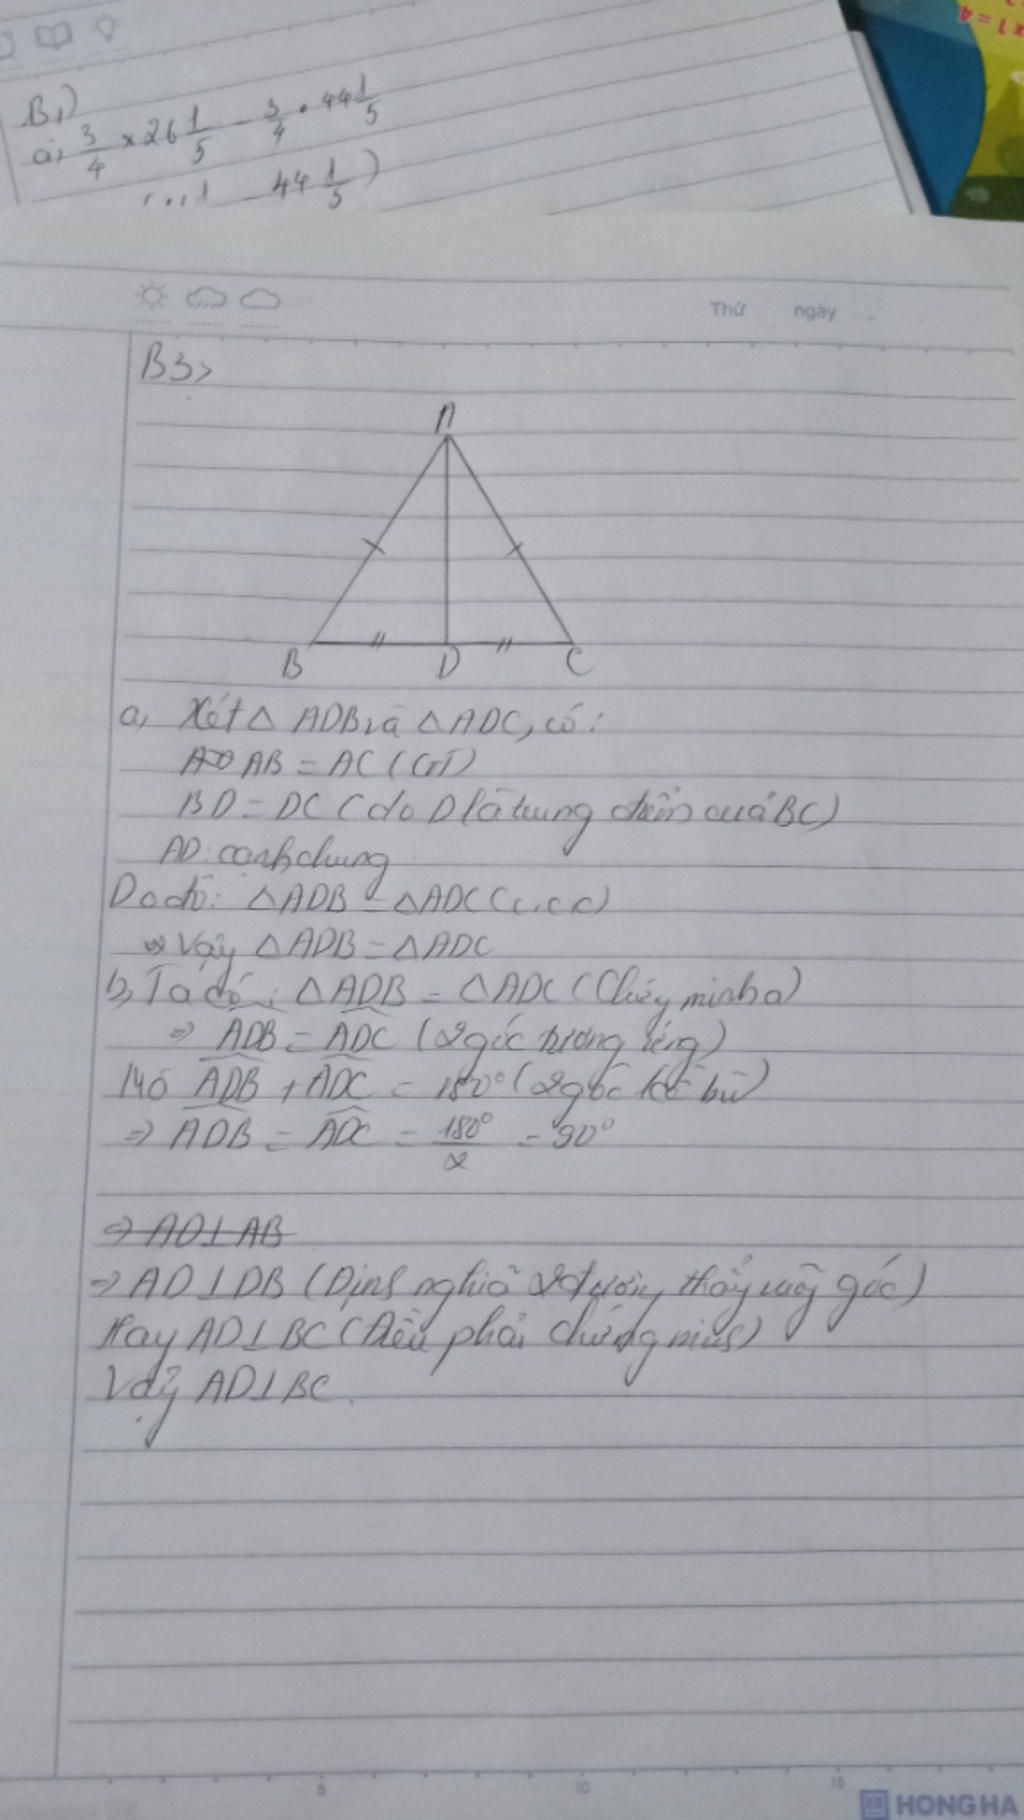 B1)
a, 3/4 × 26 1/5 - 3/4 . 44 1/5
- 44 1/5)
x1=4
Thứ ngày
B3>
A
B D C
a, Xét △ ADB và △ ADC, có:
AB = AC (GT)
BD = DC (do D là trung điểm của BC)
AD: cạnh chung
Do đó: △ADB = △ADC (c.c.c)
Vậy △ADB = △ADC
b, Ta có: △ADB = △ADC (Chứng minh a)
=> ADB = ADC (2 góc tương ứng)
Mà ADB + ADC = 180° (2 góc kề bù)
=> ADB = ADC = 180°/2 = 90°
=> AD⊥AB
=> AD⊥DB (Định nghĩa 2 đường thẳng vuông góc)
Hay AD⊥BC (Điều phải chứng minh)
Vậy AD⊥BC.
5 10 15
HONG HA